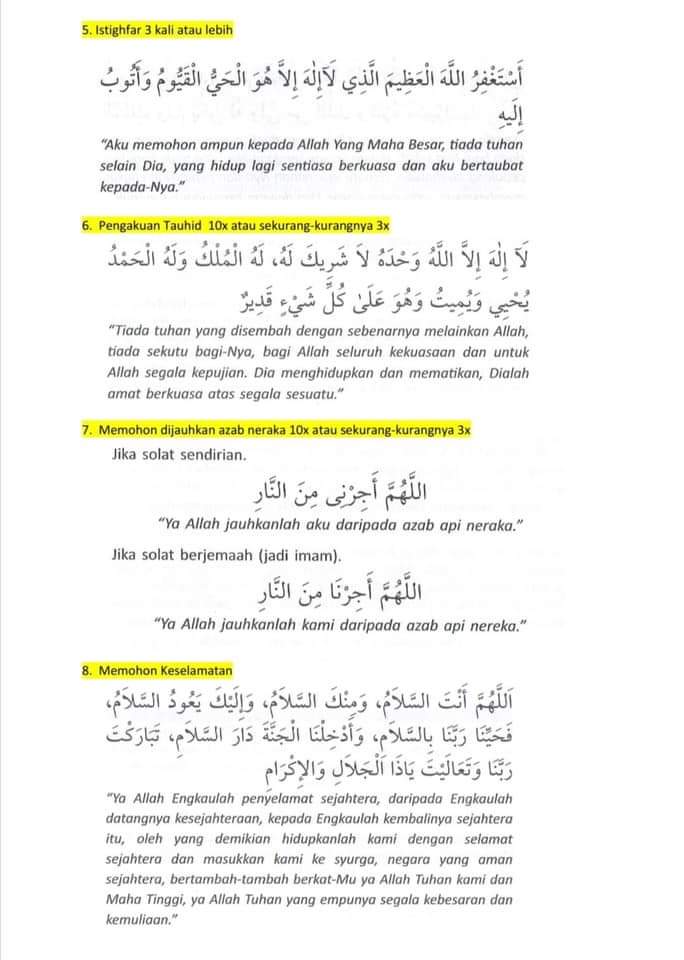 5. Istighfar 3 kali atau lebih
أَسْتَغْفِرُ اللَّهَ الْعَظِيمَ الَّذِي لَآإِلٰهَ إِلاَّ هُوَ الْحَيُّ الْقَيُّومُ وَأَتُوبُ
إِلَيهِ
“Aku memohon ampun kepada Allah Yang Maha Besar, tiada tuhan
selain Dia, yang hidup lagi sentiasa berkuasa dan aku bertaubat
kepada-Nya.”
6. Pengakuan Tauhid 10x atau sekurang-kurangnya 3x
لَآ إِلٰهَ إِلاَّ اللَّهُ وَحْدَهُ لاَ شَرِيكَ لَهُ، لَهُ الْمُلْكُ وَلَهُ الْحَمْدُ
يُحْيِي وَيُمِيتُ وَهُوَ عَلَىٰ كُلِّ شَيْءٍ قَدِيرٌ
“Tiada tuhan yang disembah dengan sebenarnya melainkan Allah,
tiada sekutu bagi-Nya, bagi Allah seluruh kekuasaan dan untuk
Allah segala kepujian. Dia menghidupkan dan mematikan, Dialah
amat berkuasa atas segala sesuatu.”
7. Memohon dijauhkan azab neraka 10x atau sekurang-kurangnya 3x
Jika solat sendirian.
اللَّهُمَّ أَجِرْنِى مِنَ النَّارِ
“Ya Allah jauhkanlah aku daripada azab api neraka.”
Jika solat berjemaah (jadi imam).
اللَّهُمَّ أَجِرْنَا مِنَ النَّارِ
“Ya Allah jauhkanlah kami daripada azab api nereka.”
8. Memohon Keselamatan
اَللَّهُمَّ أَنْتَ السَّلاَمُ، وَمِنْكَ السَّلاَمُ، وَإِلَيْكَ يَعُودُ السَّلاَمُ،
فَحَيِّنَا رَبَّنَا بِالسَّلاَمِ، وَأَدْخِلْنَا الْجَنَّةَ دَارَ السَّلاَمِ، تَبَارَكْتَ
رَبَّنَا وَتَعَالَيْتَ يَاذَا الْجَلاَلِ وَالإِكْرَامِ
“Ya Allah Engkaulah penyelamat sejahtera, daripada Engkaulah
datangnya kesejahteraan, kepada Engkaulah kembalinya sejahtera
itu, oleh yang demikian hidupkanlah kami dengan selamat
sejahtera dan masukkan kami ke syurga, negara yang aman
sejahtera, bertambah-tambah berkat-Mu ya Allah Tuhan kami dan
Maha Tinggi, ya Allah Tuhan yang empunya segala kebesaran dan
kemuliaan.”